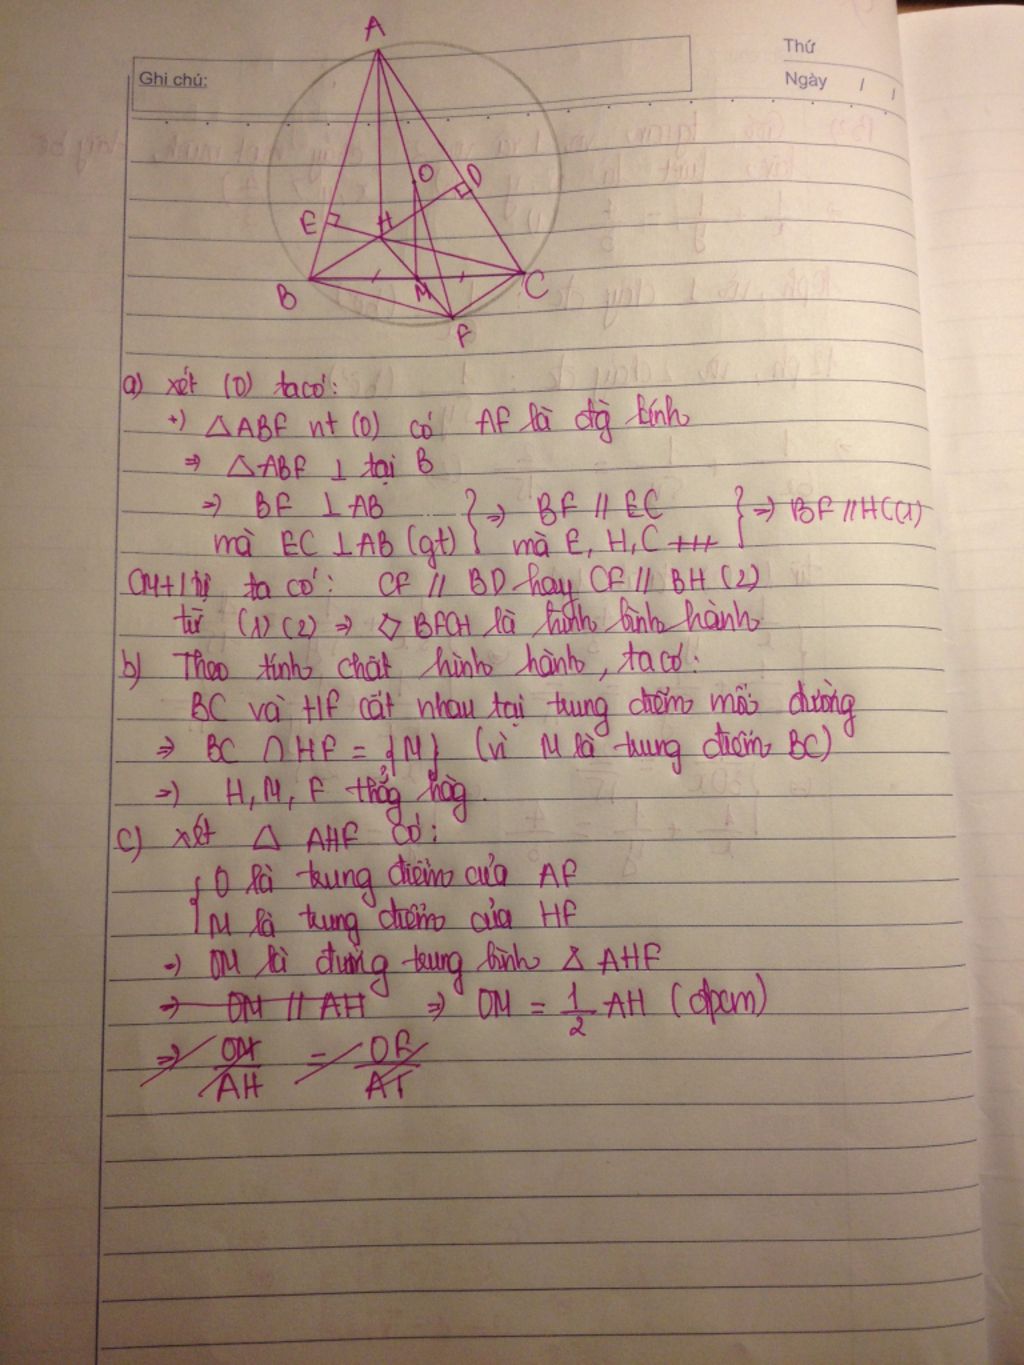 Thứ
Ghi chú:
Ngày / /
A
O
D
E
H
B
M
C
F
a) xét (O) ta có:
+) △ABF nt (O) có AF là đg kính
⇒ △ABF ⊥ tại B
⇒ BF ⊥ AB } ⇒ BF // EC } ⇒ BF // HC (1)
mà EC ⊥ AB (gt) mà E, H, C
CM ta có: CF // BD hay CF // BH (2)
từ (1) (2) ⇒ ▱ BFCH là hình bình hành
b) Theo tính chất hình hành, ta có:
BC và HF cắt nhau tại trung điểm mỗi đường
⇒ BC ∩ HF = {M} (vì M là trung điểm BC)
⇒ H, M, F thẳg hàg.
c) xét △ AHF có:
{ O là trung điểm của AF
M là trung điểm của HF
⇒ OM là đường trung bình △ AHF
⇒ OM // AH ⇒ OM = 1/2 AH (đpcm)
⇒ OM/AH = OF/AF